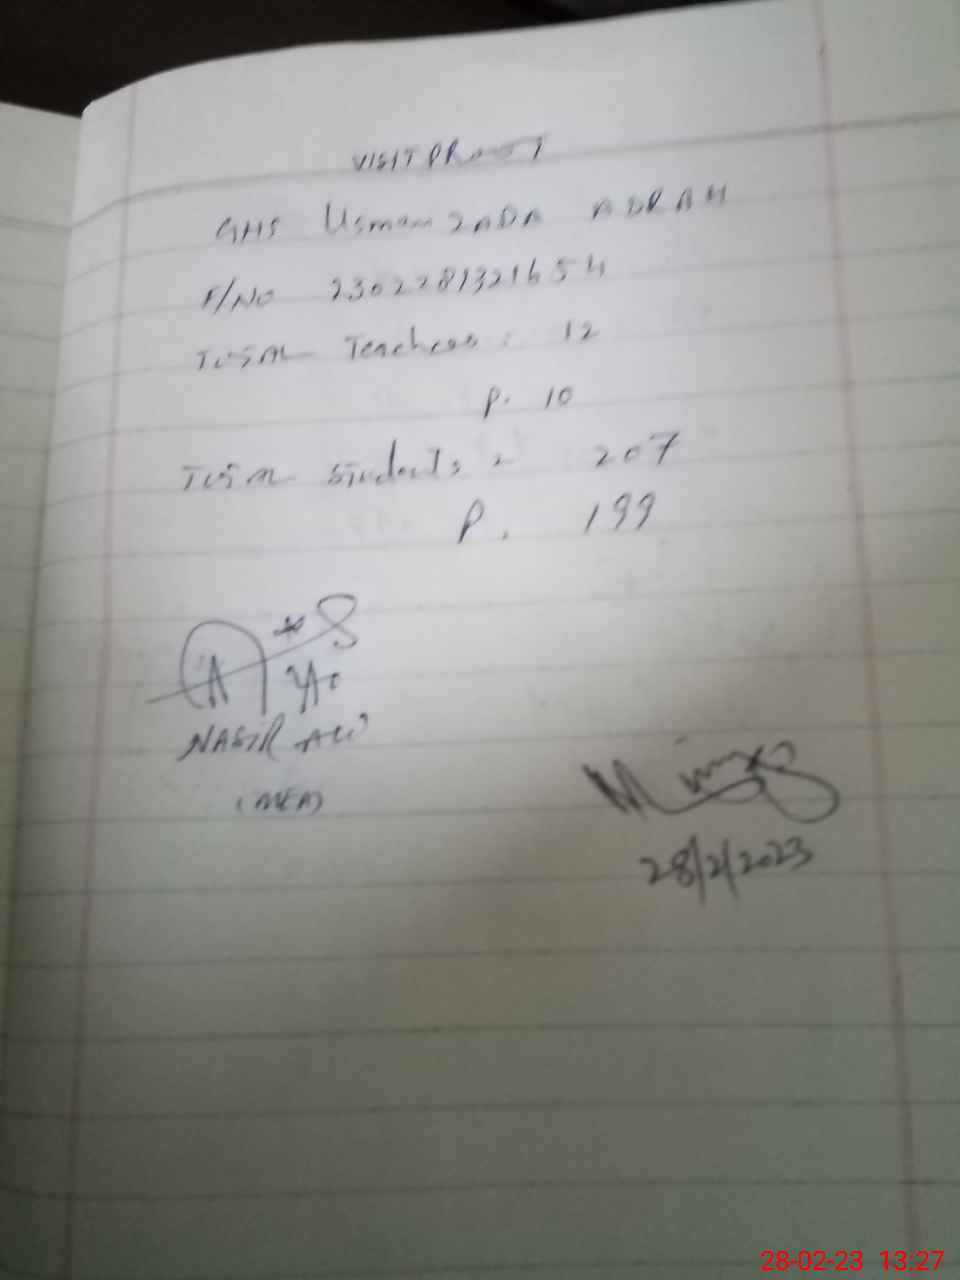 VISIT PROOF
GHS Usman ZADA ADRAH
F/NO 2302281321654
TOTAL Teachers : 12
P. 10
TOTAL Students = 207
P. 199
NASIR ALI
(MEA)
28/2/2023
28-02-23 13:27